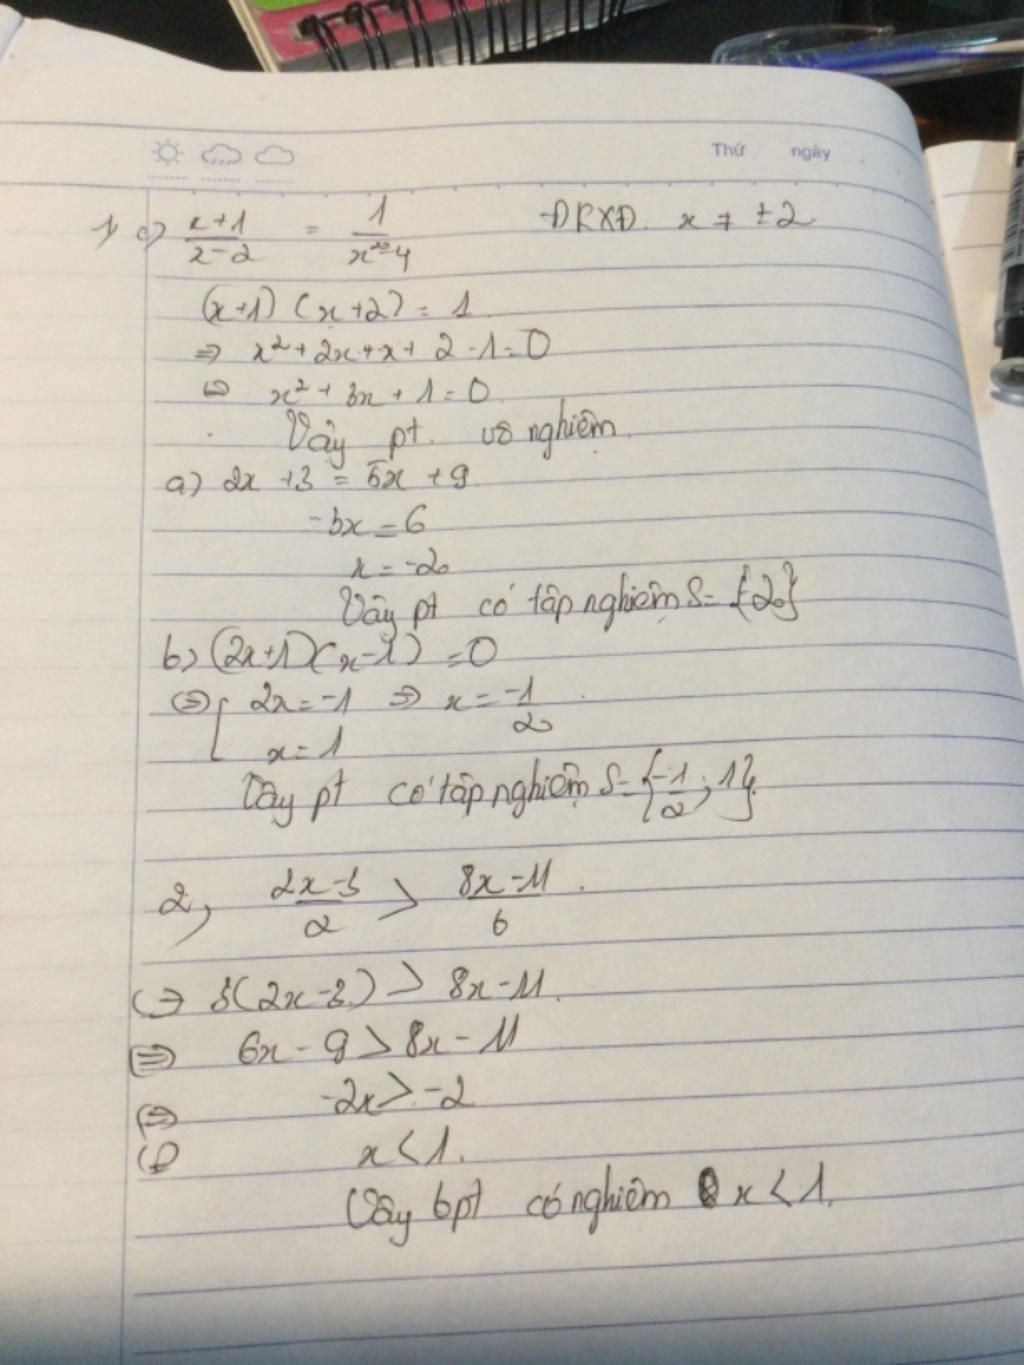 Thứ ngày
1, c) x+1/x-2 = 1/x²-4 ĐKXĐ. x ≠ ±2
(x+1) (x+2) = 1
=> x² + 2x + x + 2 - 1 = 0
<=> x² + 3x + 1 = 0
Vậy pt. vô nghiệm.
a) 2x + 3 = 5x + 9
-3x = 6
x = -2
Vậy pt có tập nghiệm S = {2}
b) (2x+1)(x-1) = 0
<=> [ 2x = -1 => x = -1/2
x = 1
Vậy pt có tập nghiệm S = {-1/2; 1}.
2, 2x-3/2 > 8x-11/6.
<=> 3(2x-3) > 8x-11.
<=> 6x - 9 > 8x - 11
<=> -2x > -2
<=> x < 1.
Vậy bpt có nghiệm x < 1.